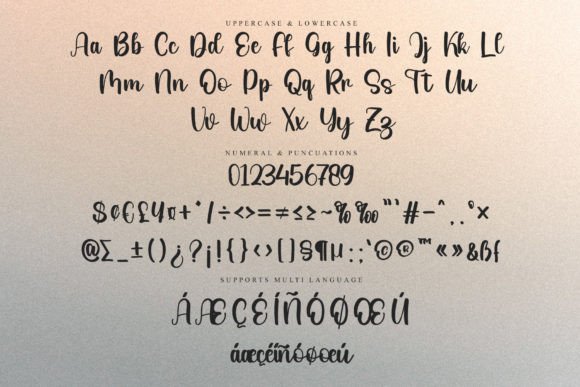 UPPERCASE & LOWERCASE
Aa Bb Cc Dd Ee Ff Gg Hh Ii Jj Kk Ll
Mm Nn Oo Pp Qq Rr Ss Tt Uu
Vv Ww Xx Yy Zz
NUMERAL & PUNCUATIONS
0123456789
$¢€£¥¤+*/÷<>=≠≤≥~‰"'#-^..°×
@∑_±()¿?¡!{}‹›[]§¶µ:;‘©®™«»&ßf
SUPPORTS MULTI LANGUAGE
ÁÆÇÉÍÑÓØŒÚ
áæçéíñóøœú